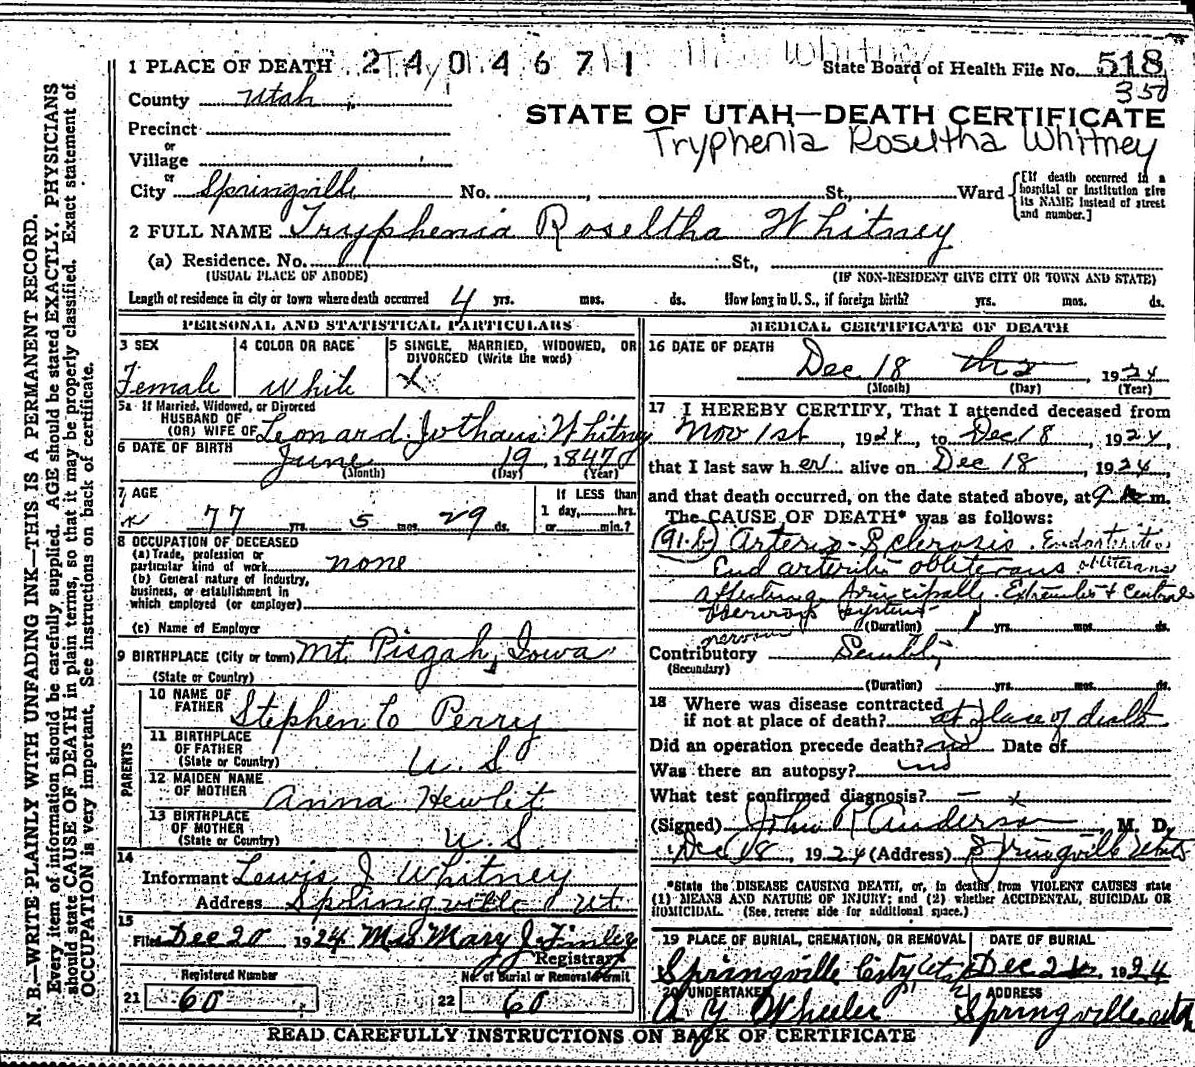 2404671 Whitney
1 PLACE OF DEATH State Board of Health File No. 518
350
County Utah
STATE OF UTAH—DEATH CERTIFICATE
Precinct
Tryphenia Roseltha Whitney
or
Village
or
City Springville No. St., Ward
[If death occurred in a hospital or institution give its NAME instead of street and number.]
2 FULL NAME Tryphenia Roseltha Whitney
(a) Residence. No. St.,
(USUAL PLACE OF ABODE) (IF NON-RESIDENT GIVE CITY OR TOWN AND STATE)
Length of residence in city or town where death occurred 4 yrs. mos. ds. How long in U. S., if foreign birth? yrs. mos. ds.
PERSONAL AND STATISTICAL PARTICULARS
3 SEX
Female
4 COLOR OR RACE
White
5 SINGLE, MARRIED, WIDOWED, OR
DIVORCED (Write the word)
X
5a If Married, Widowed, or Divorced
HUSBAND OF
(OR) WIFE OF Leonard Whitney
6 DATE OF BIRTH June 19, 1847
(Month) (Day) (Year)
7 AGE
77 yrs. 5 mos. 29 ds.
If LESS than
1 day, hrs.
or min.?
8 OCCUPATION OF DECEASED
(a) Trade, profession or
particular kind of work none
(b) General nature of industry,
business, or establishment in
which employed (or employer)
(c) Name of Employer
9 BIRTHPLACE (City or town) Mt. Pisgah, Iowa
(State or Country)
PARENTS
10 NAME OF
FATHER Stephen C Perry
11 BIRTHPLACE
OF FATHER
(State or Country) U. S
12 MAIDEN NAME
OF MOTHER Anna Hewlet
13 BIRTHPLACE
OF MOTHER
(State or Country) U. S
14
Informant Lewis J Whitney
Address Springville Ut.
15
Filed Dec 20 1924 Mrs Mary J. Finley
Registrar
Registered Number
21 60
No. of Burial or Removal Permit
22 60
MEDICAL CERTIFICATE OF DEATH
16 DATE OF DEATH
Dec 18 ths, 1924
(Month) (Day) (Year)
17 I HEREBY CERTIFY, That I attended deceased from
Nov 1st, 1924, to Dec 18, 1924,
that I last saw her alive on Dec 18 1924,
and that death occurred, on the date stated above, at 9 m.
The CAUSE OF DEATH* was as follows:
(91-b) Arterio-Sclerosis. Endarteritis
End arteritis obliterans obliterans
affecting principally Extremities & Central
nervous system
(Duration) 1 yrs. mos. ds.
nervous
Contributory Senility
(Secondary)
(Duration) yrs. mos. ds.
18 Where was disease contracted
if not at place of death? at place of death
Did an operation precede death? no Date of
Was there an autopsy? no
What test confirmed diagnosis? — x
(Signed) John R Anderson M. D.
Dec 18, 1924 (Address) Springville Utah
*State the DISEASE CAUSING DEATH, or, in deaths from VIOLENT CAUSES state
(1) MEANS AND NATURE OF INJURY; and (2) whether ACCIDENTAL, SUICIDAL OR
HOMICIDAL. (See reverse side for additional space.)
19 PLACE OF BURIAL, CREMATION, OR REMOVAL
Springville City
DATE OF BURIAL
Dec 21, 1924
20 UNDERTAKER
A Y Wheeler
ADDRESS
Springville Utah
READ CAREFULLY INSTRUCTIONS ON BACK OF CERTIFICATE
N. B.—WRITE PLAINLY WITH UNFADING INK—THIS IS A PERMANENT RECORD.
Every item of information should be carefully supplied. AGE should be stated EXACTLY. PHYSICIANS
should state CAUSE OF DEATH in plain terms, so that it may be properly classified. Exact statement of
OCCUPATION is very important. See instructions on back of certificate.